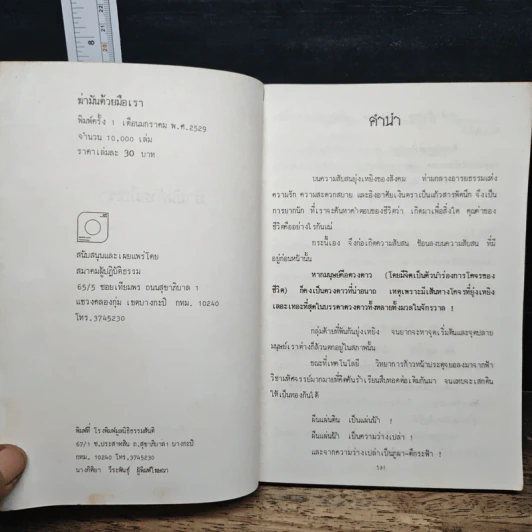 8
ฆ่ามันด้วยมือเรา
พิมพ์ครั้ง 1 เดือนมกราคม พ.ศ.2529
จำนวน 10,000 เล่ม
ราคาเล่มละ 30 บาท
สนับสนุนและเผยแพร่โดย
สมาคมผู้ปฏิบัติธรรม
65/5 ซอยเทียมพร ถนนสุขาภิบาล 1
แขวงคลองกุ่ม เขตบางกะปิ กทม. 10240
โทร.3745230
พิมพ์ที่ โรงพิมพ์มูลนิธิธรรมสันติ
67/1 ซ.ประสาทสิน ถ.สุขาภิบาล 1 บางกะปิ
กทม. 10240 โทร.3745230
นางศิศิยา วีระพันธุ์ ผู้พิมพ์โฆษณา
คำนำ
บนความสับสนยุ่งเหยิงของสังคม ท่ามกลางอารยธรรมแห่ง
ความรัก ความสะดวกสบาย และอิงอาศัยเงินตราเป็นแก้วสารพัดนึก จึงเป็น
การยากนัก ที่เราจะค้นหาคำตอบของชีวิตว่า เกิดมาเพื่อสิ่งใด คุณค่าของ
ชีวิตคืออย่างไรกันแน่
กระนี้เอง จึงก่อเกิดความสับสน ซ้อนลงบนความสับสน ที่มี
อยู่ก่อนหน้านั้น
หากมนุษย์คือดวงดาว (โดยมีจิตเป็นตัวนำร่องการโคจรของ
ชีวิต) ก็คงเป็นดวงดาวที่น่าอนาถ เหตุเพราะมีเส้นทางโคจรที่ยุ่งเหยิง
เลอะเทอะที่สุดในบรรดาดวงดาวทั้งหลายทั้งมวลในจักรวาล !
กลุ่มด้ายที่พันกันยุ่งเหยิง จนยากจะหาจุดเริ่มต้นและจุดปลาย
มนุษย์เราต่างก็ล้วนตกอยู่ในสภาพนั้น
ขณะที่เทคโนโลยี วิทยาการก้าวหน้าประดุจยอลงมาจากฟ้า
วิชามหัศจรรย์มากมายที่คิดค้นร่ำเรียนสืบทอดต่อเติมกันมา จนแทบจะเสกดิน
ให้เป็นทองกันได้
ผืนแผ่นดิน เป็นแผ่นฟ้า !
ผืนแผ่นฟ้า เป็นความว่างเปล่า !
และจากความว่างเปล่าเป็นภูผา-ตึกระฟ้า !